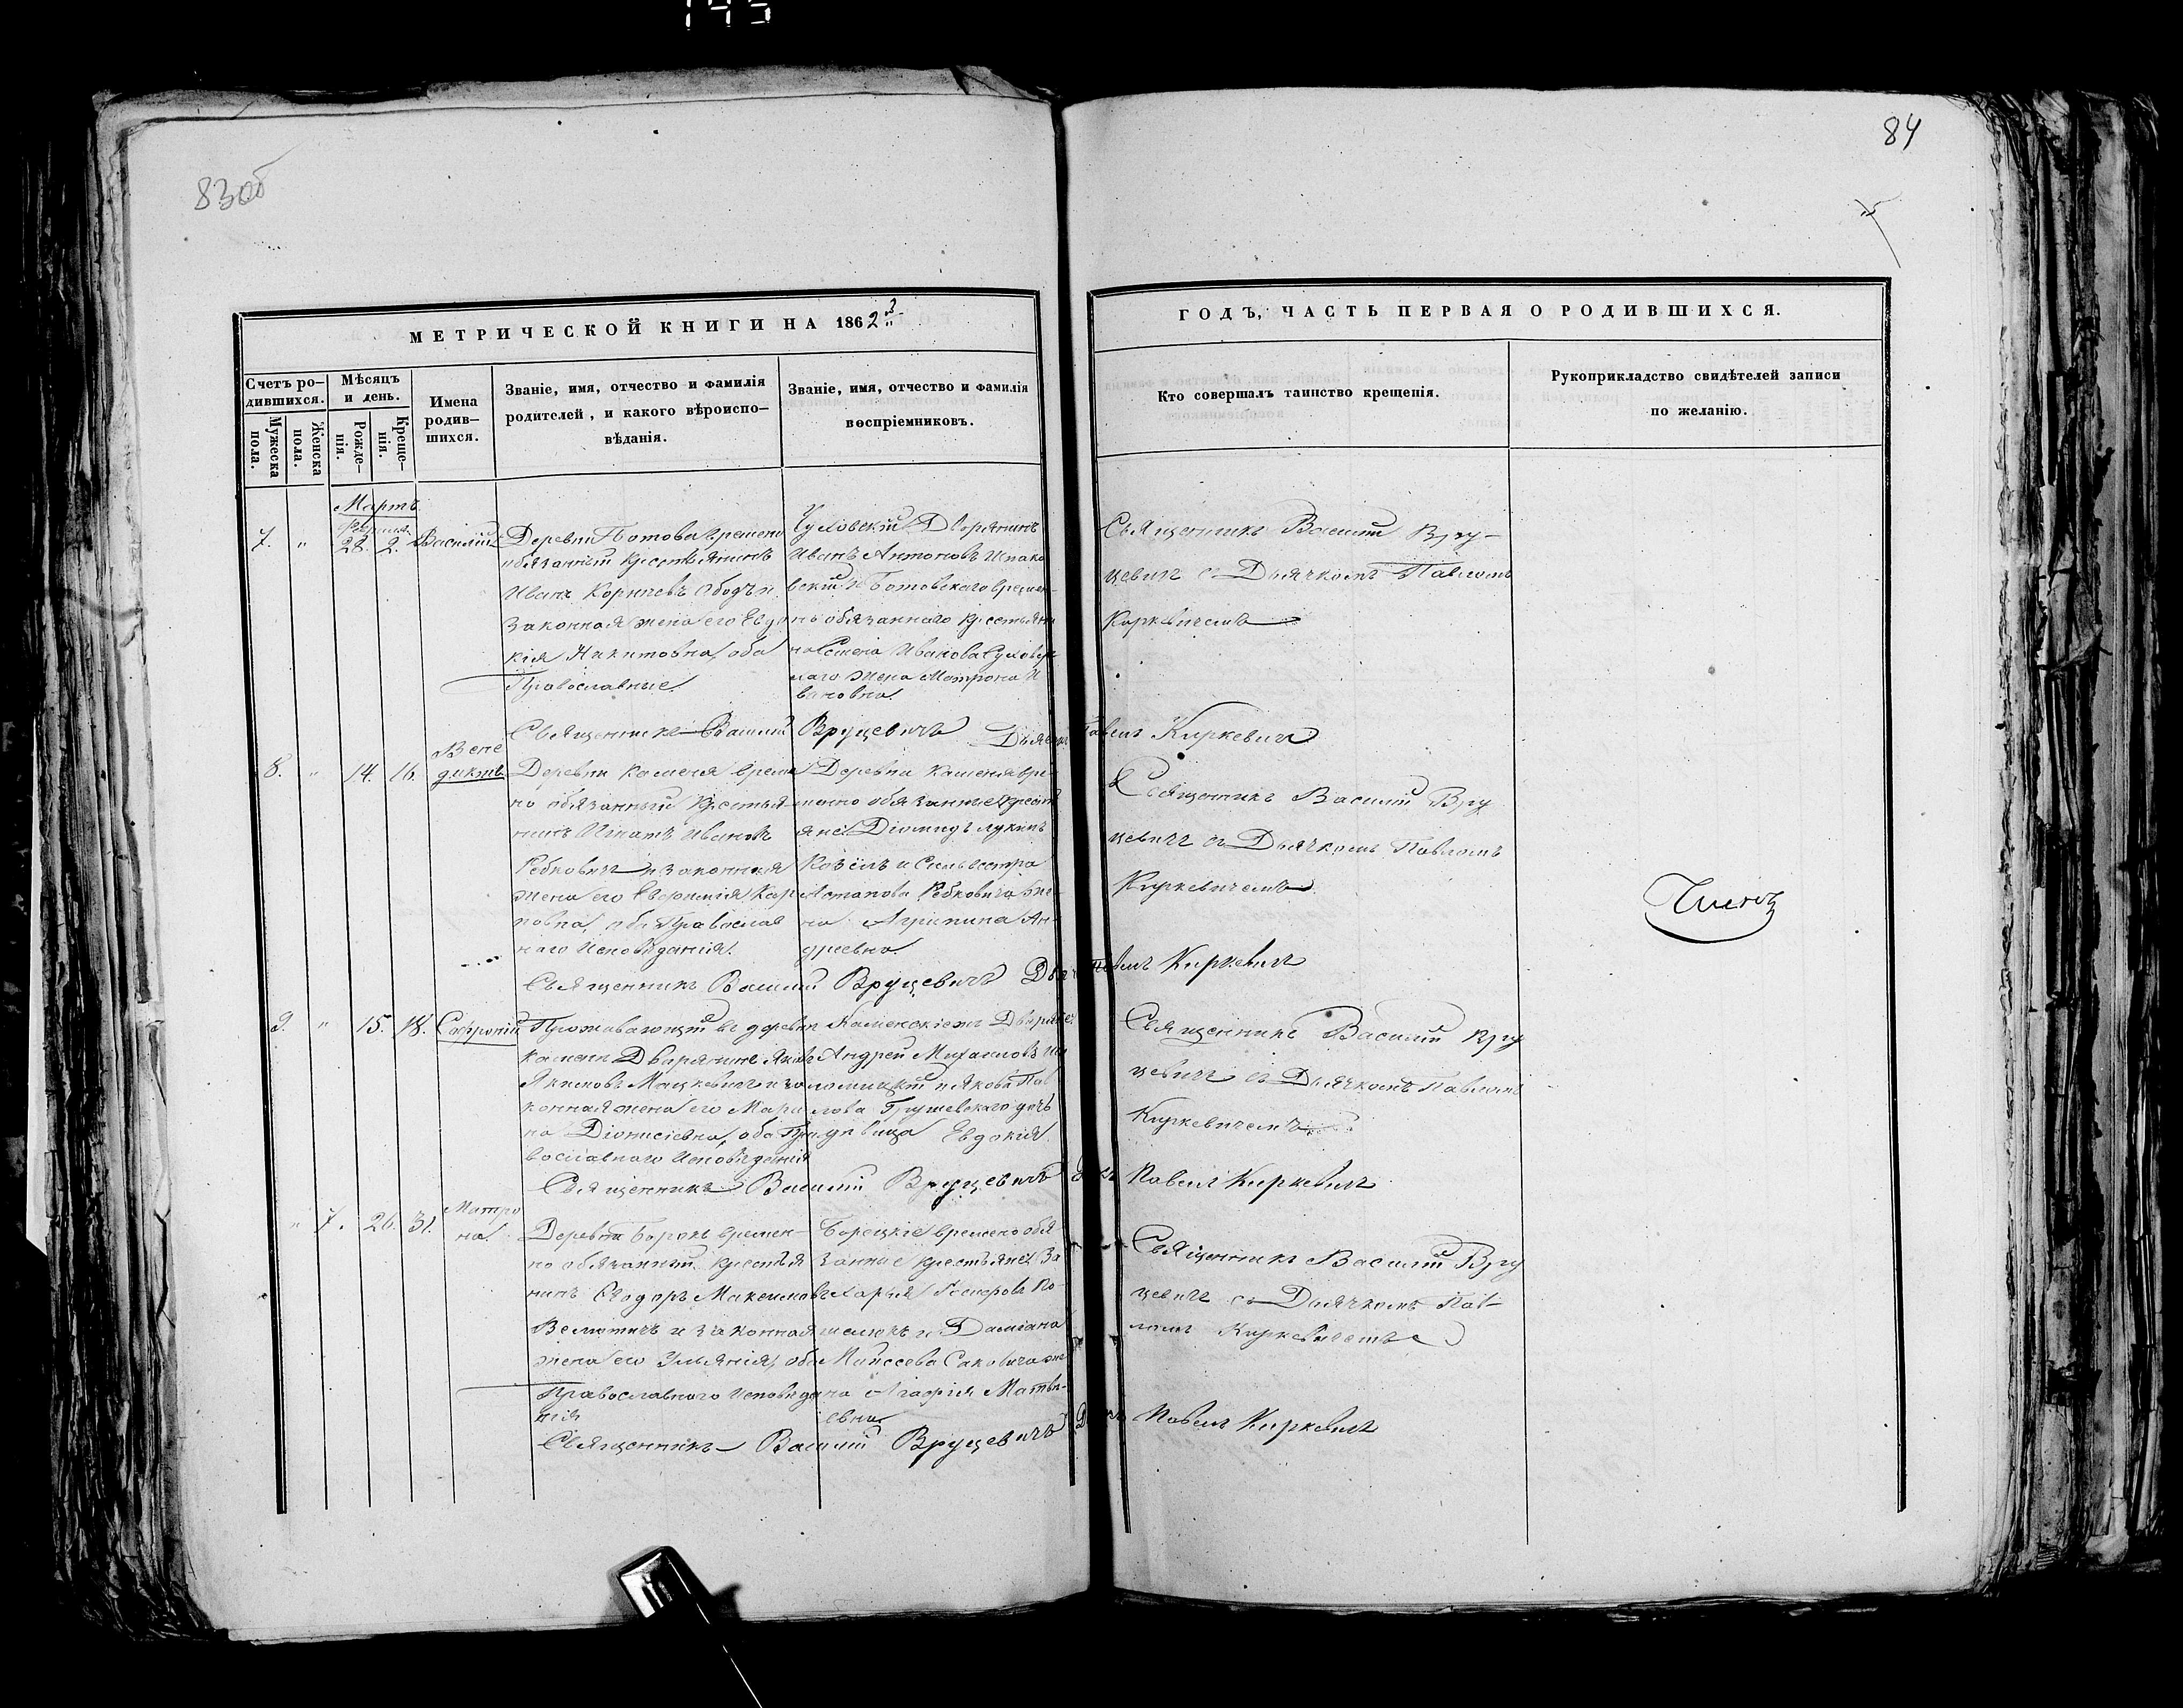 145
83об
84
МЕТРИЧЕСКОЙ КНИГИ НА 1862й
ГОДЪ, ЧАСТЬ ПЕРВАЯ О РОДИВШИХСЯ.
Счетъ ро-
дившихся.
Мужеска
пола.
Женска
пола.
Мѣсяцъ
и день.
Рожде-
нія.
Креще-
нія.
Имена
родив-
шихся.
Званіе, имя, отчество и фамилія
родителей, и какого вѣроиспо-
вѣданія.
Званіе, имя, отчество и фамилія
воспріемниковъ.
Кто совершалъ таинство крещенія.
Рукоприкладство свидѣтелей записи
по желанію.
Мартъ
7. " 28. 2. Василій
Деревни Ботова времено
обязанный крестьянинъ
Иванъ Корнѣевъ
законная жена его Евдо
кія Никитовна, оба
Православные.
Дворянинъ
Иванъ Антоновъ
и Ботовскаго времен
но обязаннаго крестьяни
на Ивана
жена Матрона И
вановна.
Священникъ Василій Вру-
цевичъ съ Дьячкомъ Павломъ
Киркевичемъ
Священникъ Василій Вруцевичъ Дьячекъ Павелъ Киркевичъ
8. " 14. 16. Вене
диктъ
Деревни Каменя време
но обязанный крестья
нинъ Игнатъ Ивановъ
Ребковичъ и законная
жена его Евфимія Кар
повна, оба Православ
наго Исповѣданія.
Деревни Каменя вре-
менно обязанные крестья
яне Діомидъ Лукинъ
Козелъ и Сильвестра
Астапова Ребковича же-
на Агрипина Ан-
дреевна.
Священникъ Василій Вру
цевичъ съ Дьячкомъ Павломъ
Киркевичемъ
Членъ
Священникъ Василій Вруцевичъ Дьячекъ Павелъ Киркевичъ
9. " 15. 18. Софроній
Проживающій въ деревни
Камени Дворянинъ Яковъ
Якимовъ Мацкевичъ и за
конная жена его Мари
на Діонисіевна, оба Пра
вославнаго Исповѣданія
Каменскіе Дворяне:
Андрей Михаиловъ
и Якова Пав
лова Грушевскаго дочь
дѣвица Евдокія.
Священникъ Василій Вру
цевичъ съ Дьячкомъ Павломъ
Киркевичемъ
Священникъ Василій Вруцевичъ Павелъ Киркевичъ
" 7. 26. 31. Матро
на
Деревни Борокъ времен-
но обязанный крестья
нинъ Ѳеодоръ Максимовъ
Велютичъ и законная
жена его Ульянія, оба
Православнаго Исповѣда
нія
Борецкіе времено обя
занные крестьяне За
харія
и Даміана
Моисеева Саковича же
на Агафія Матвѣ-
евна
Священникъ Василій Вру
цевичъ съ Дьячкомъ Пав-
ломъ Киркевичемъ
Священникъ Василій Вруцевичъ Павелъ Киркевичъ